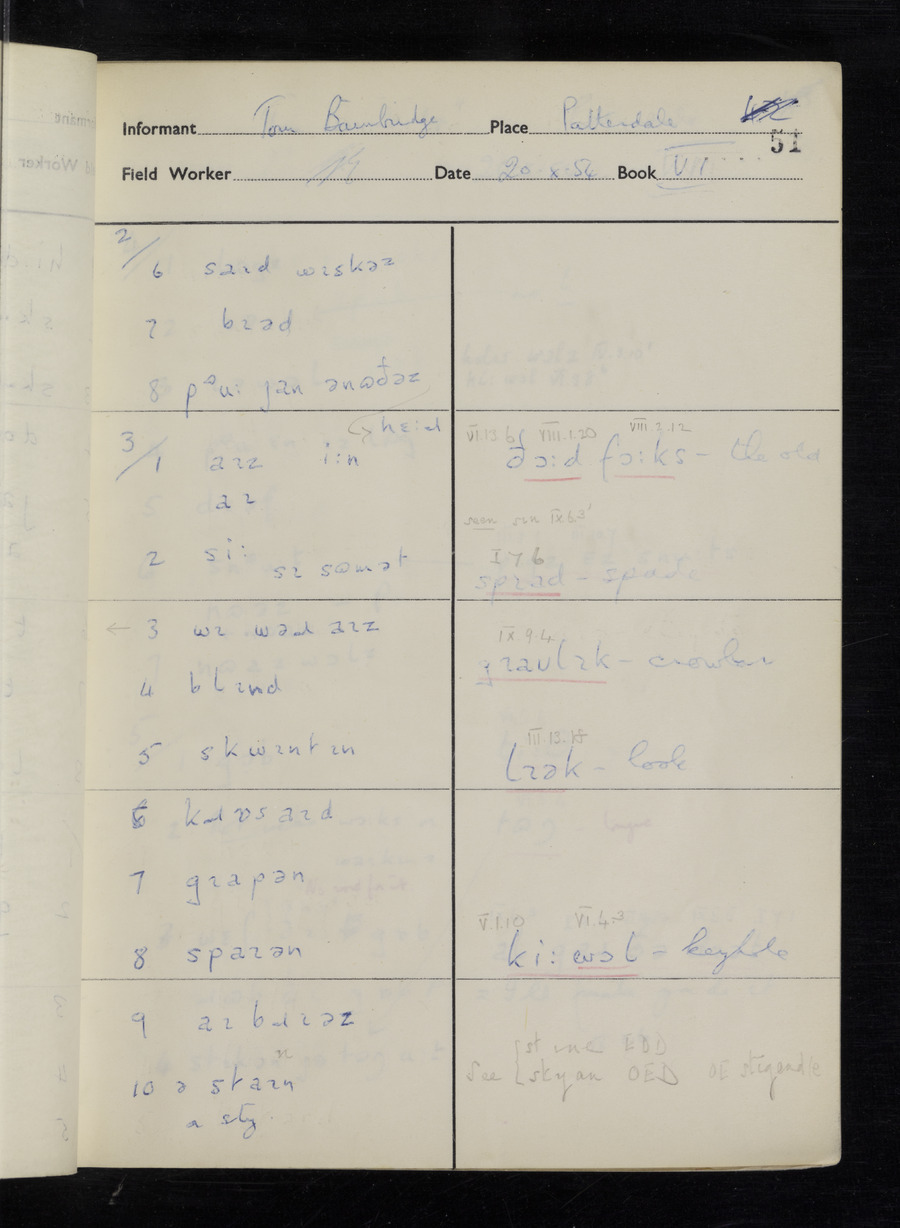 Informant Tom Bainbridge Place Patterdale
51
Field Worker Date 20.x.54 Book VI
2/
6 saɪd wɪskəz
7 bɪəd
8 pᵊu: jan ənʊðəz
hɛ:d
3/1 aɪz i:n
aɪ
2 si:
sɪ sʊmət
← 3 wɪ wəɹ aɪz
4 blɪnd
5 skwɪntɪn
6 kɹɒsaɪd
7 gɹapən
8 spaɹən
9 aɪbɹɪəz
10 ə staɪn
a sty
VI.13.6 VIII.1.20 VIII.2.12
ðɔ:d fɔ:ks – the old
seen sɪn IX.6.3'
I.7.6
spɪad – spade
IX.9.4
gavlɪk – crowbar
III.13.18
lɪək – look
V.1.10 VI.4.3
ki:wɔl – keyhole
EDD
See styan OED OE stigend/e